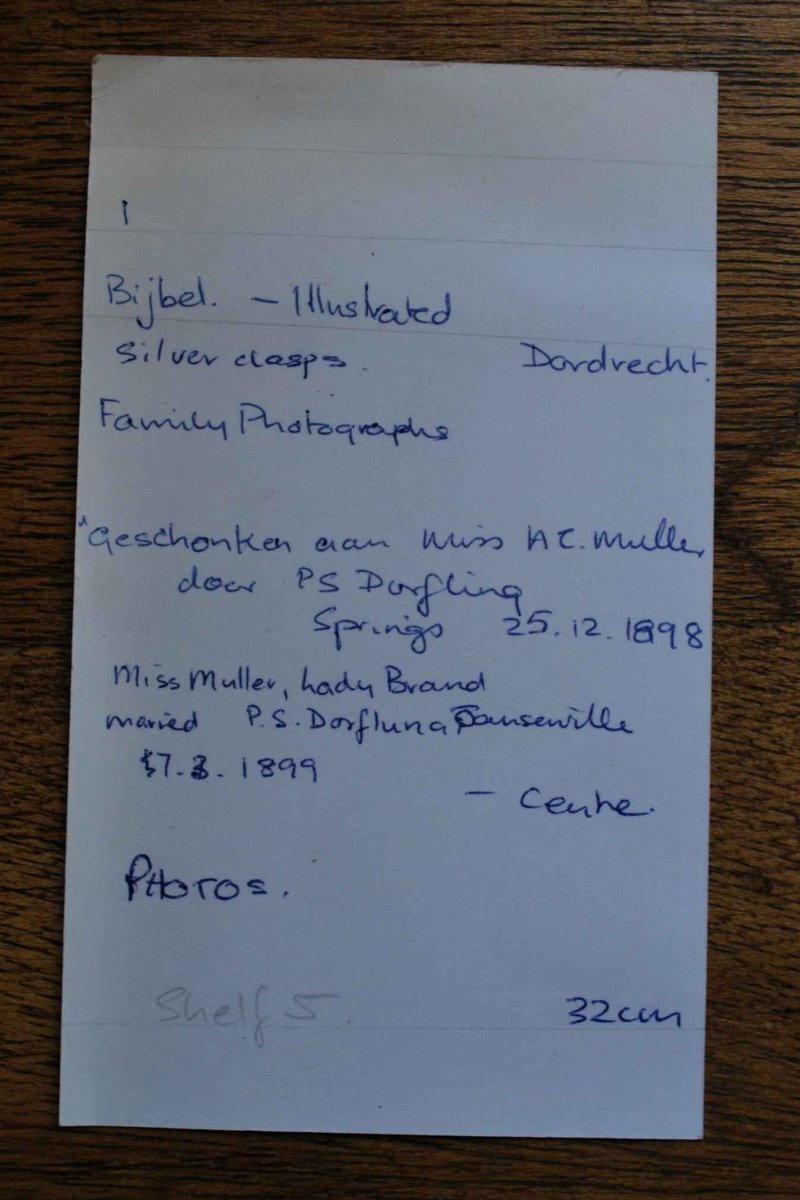 1
Bijbel. — Illustrated
Silver clasps. Dordrecht.
Family Photographs
"Geschonken aan Miss H C. Muller
door PS Dorfling
Springs 25.12.1898
Miss Muller, Lady Brand
married P.S. Dorfling Jansenville
7.3.1899
— Centre.
PHOTOS.
Shelf 5.
32cm